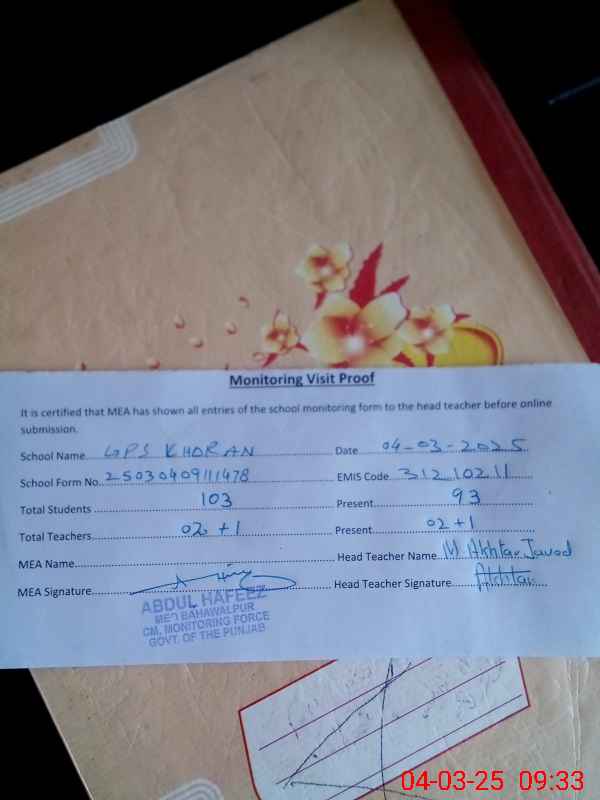 Monitoring Visit Proof
It is certified that MEA has shown all entries of the school monitoring form to the head teacher before online
submission.
School Name GPS KHORAN Date 04-03-2025
School Form No. 25030409111478 EMIS Code 31210211
Total Students 103 Present 93
Total Teachers 02 +1 Present 02 +1
MEA Name Head Teacher Name M Akhtar Javed
MEA Signature Head Teacher Signature Akhtar
ABDUL HAFEEZ
MEA BAHAWALPUR
CM, MONITORING FORCE
GOVT. OF THE PUNJAB
04-03-25 09:33